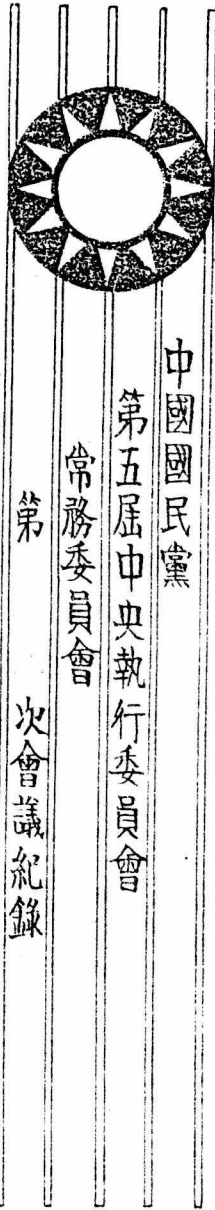 中國國民黨
第五屆中央執行委員會
常務委員會
第　　次會議紀錄